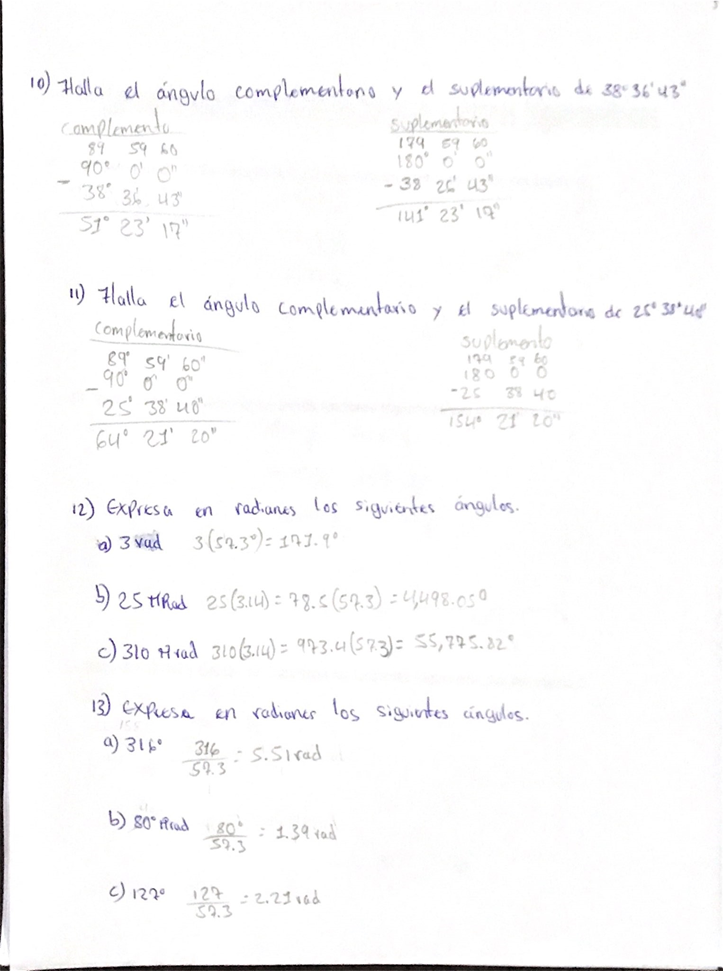 10) Halla el ángulo complementario y el suplementario de 38° 36' 43"
complemento
89 59 60
90° 0' 0"
- 38° 36 43"
51° 23' 17"
suplementario
179 59 60
180° 0' 0"
- 38 26' 43"
141° 23' 17"
11) Halla el ángulo complementario y el suplementario de 25° 38' 40"
complementario
89° 59' 60"
- 90° 0' 0"
25° 38' 40"
64° 21' 20"
suplemento
179 59 60
180 0 0
-25 38 40
154° 21' 20"
12) Expresa en radianes los siguientes ángulos.
a) 3 rad 3(57.3°)=171.9°
b) 25 πRad 25(3.14)=78.5(57.3)=4,498.05°
c) 310 π rad 310(3.14)=973.4(57.3)= 55,775.82°
13) Expresa en radianes los siguientes ángulos.
a) 316° 316/57.3 = 5.51 rad
b) 80° πrad 80°/57.3 = 1.39 rad
c) 127° 127/57.3 = 2.21 rad